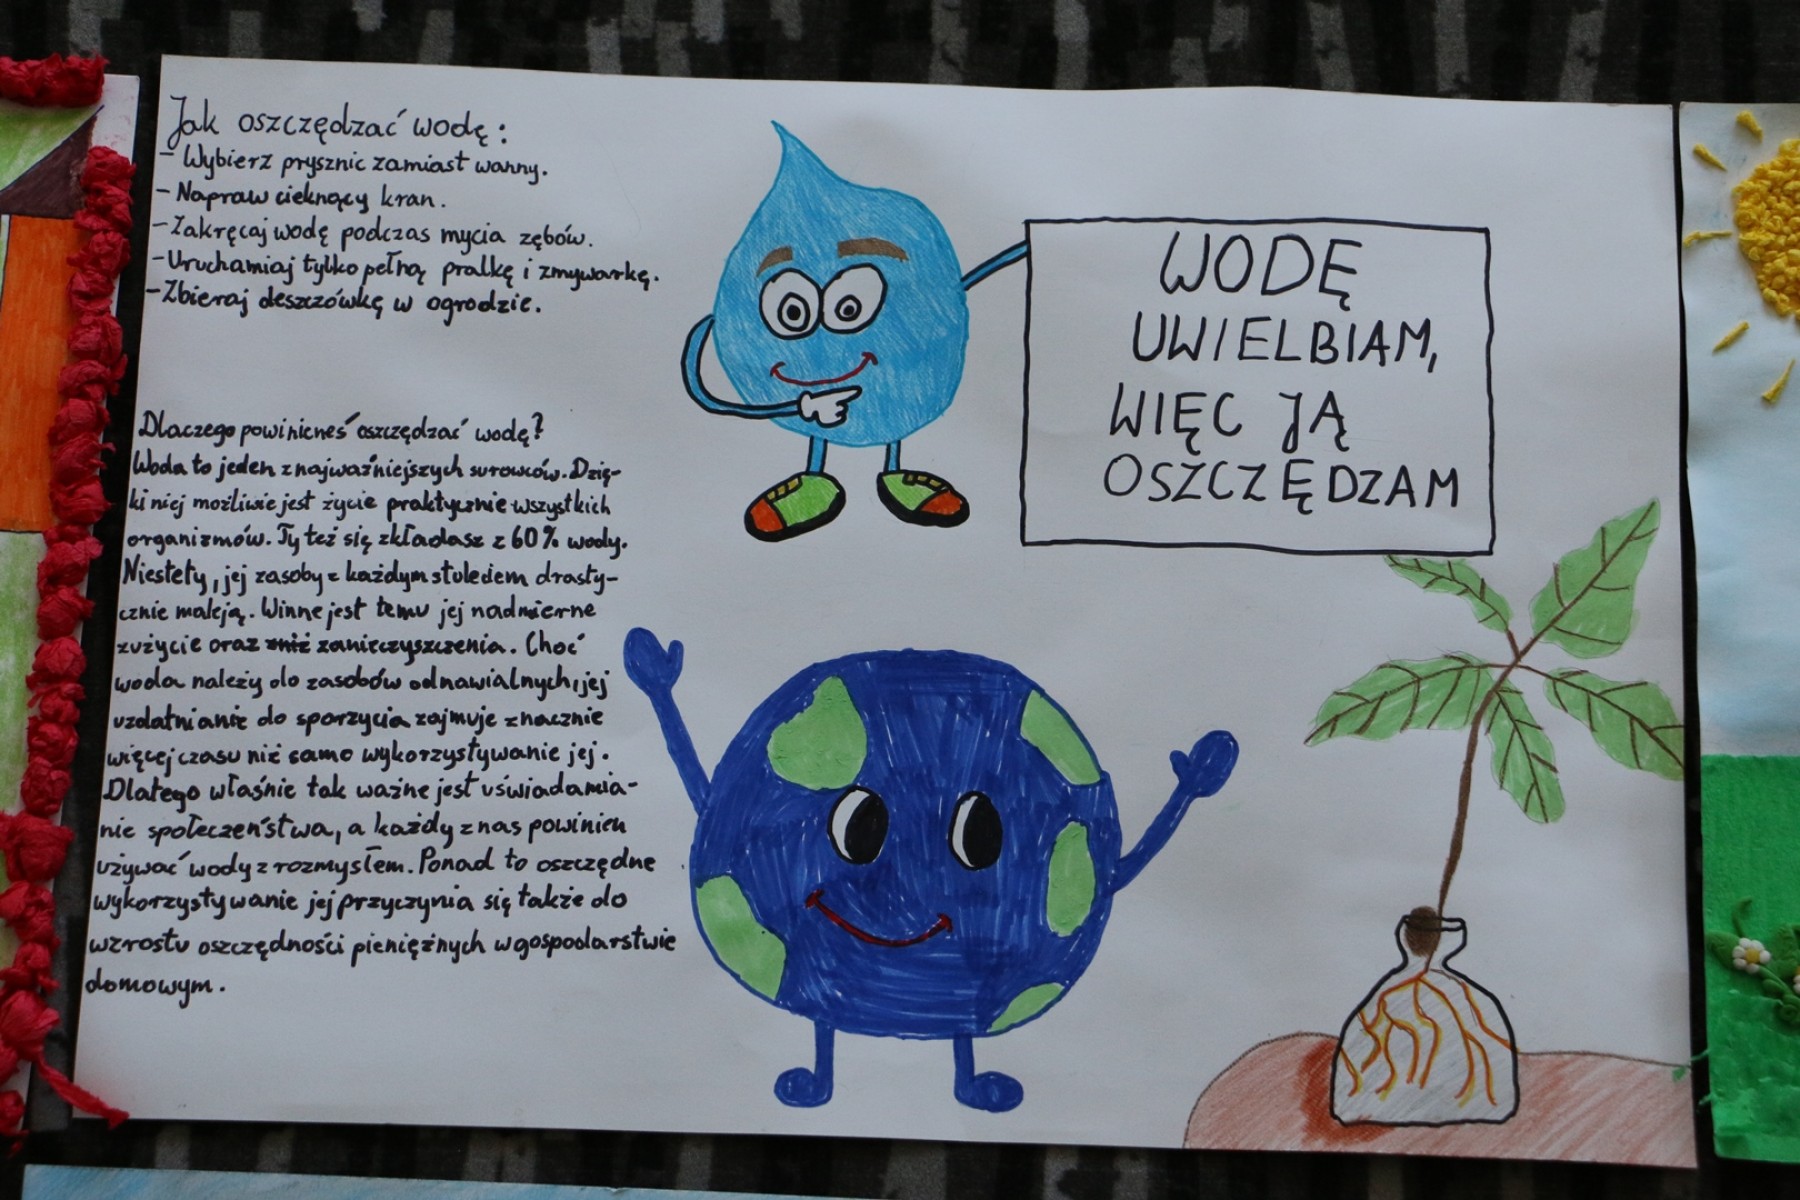 Jak oszczędzać wodę:
- Wybierz prysznic zamiast wanny.
- Napraw cieknący kran.
- Zakręcaj wodę podczas mycia zębów.
- Uruchamiaj tylko pełną pralkę i zmywarkę.
- Zbieraj deszczówkę w ogrodzie.
WODĘ
UWIELBIAM,
WIĘC JĄ
OSZCZĘDZAM
Dlaczego powinieneś oszczędzać wodę?
Woda to jeden z najważniejszych surowców. Dzię-
ki niej możliwie jest życie praktycznie wszystkich
organizmów. Ty też się zkładasz z 60% wody.
Niestety, jej zasoby z każdym stuleciem drasty-
cznie maleją. Winne jest temu jej nadmierne
zużycie oraz zanieczyszczenia. Choć
woda należy do zasobów odnawialnych, jej
uzdatnianie do sporzycia zajmuje znacznie
więcej czasu niż samo wykorzystywanie jej.
Dlatego właśnie tak ważne jest uświadamia-
nie społeczeństwa, a każdy z nas powinien
używać wody z rozmysłem. Ponad to oszczędne
wykorzystywanie jej przyczynia się także do
wzrostu oszczędności pieniężnych w gospodarstwie
domowym.